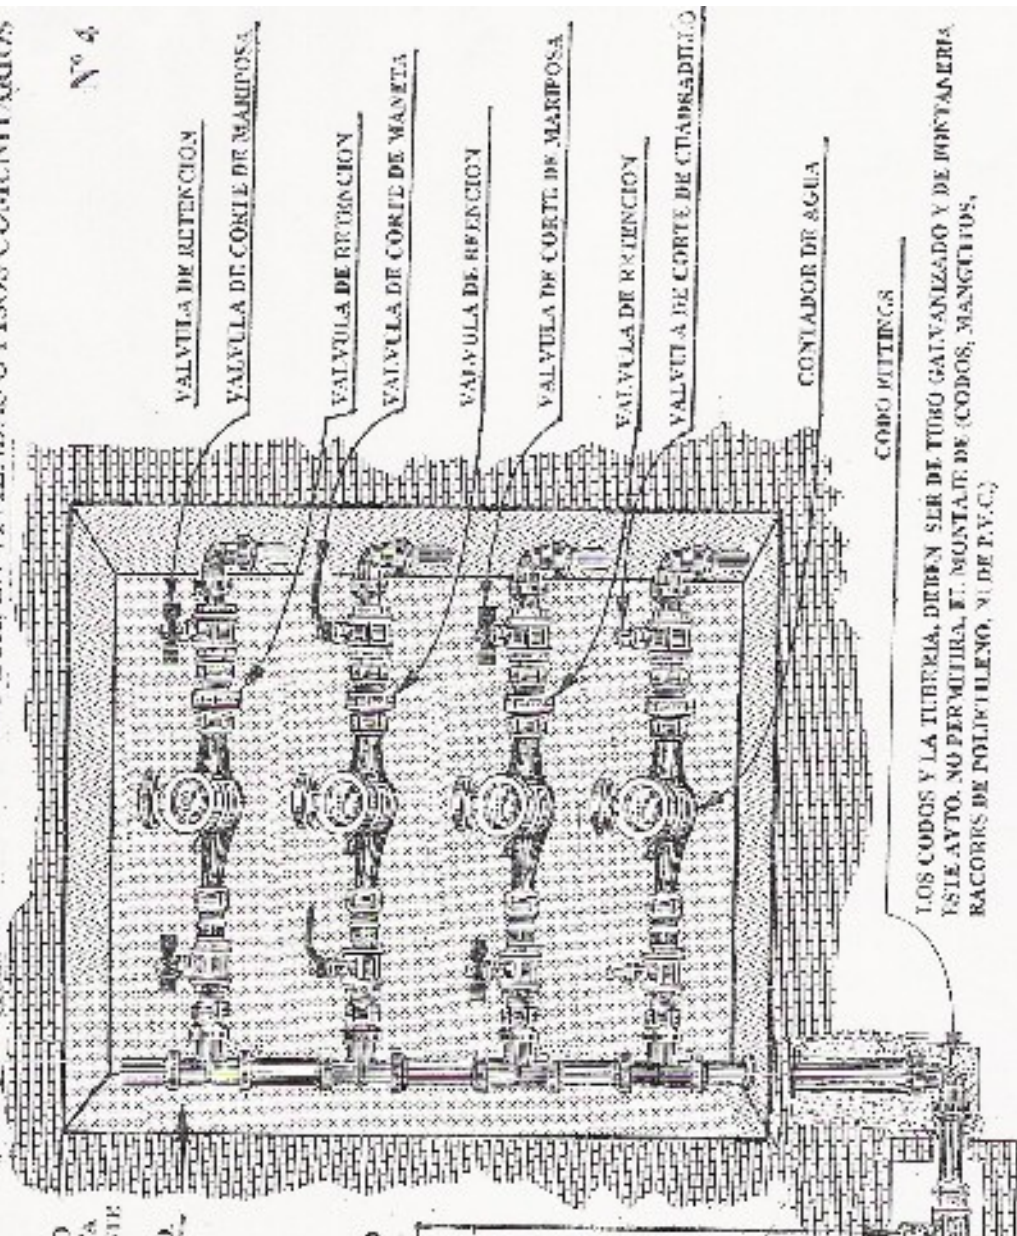 Nº 4
VALVULA DE RETENCION
VALVULA DE CORTE DE MARIPOSA
VALVULA DE RETENCION
VALVULA DE CORTE DE MANETA
VALVULA DE REENCION
VALVULA DE CORTE DE MARIPOSA
VALVULA DE RETENCION
VALVULA DE CORTE DE CUADRADILLO
CONTADOR DE AGUA
CODO FITTINGS
LOS CODOS Y LA TUBERIA, DEBEN SER DE TUBO GALVANIZADO Y DE FONTANERIA
ESTE AYTO. NO PERMITIRA, EL MONTAJE DE (CODOS, MANGUITOS,
RACORES DE POLIETILENO, NI DE P.V.C.)